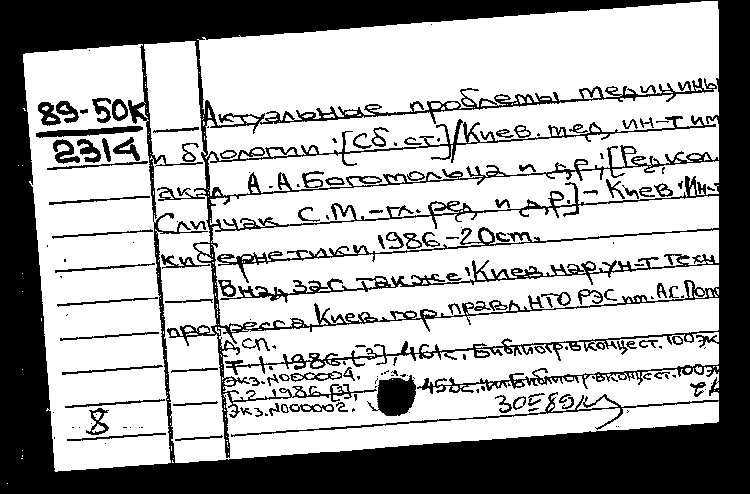 89-50К
2314
Актуальные проблемы медицины
и биологии :[Сб. ст.]/Киев. мед. ин-т им
акад. А.А.Богомольца и др.; [Редкол.
Слинчак С.М.-гл. ред. и др.]- Киев: Ин-т
кибернетики, 1986.-20 см.
В надзаг. также: Киев. нар. ун-т техн
прогресса, Киев. гор. правл. НТО РЭС им. А.С. Попо
ДСП.
Т.1. 1986. [3], 461с. Библиогр. в конце ст. 100 эк
Экз.N000004.
Т.2 1986. [3], 452с. ил. Библиогр. в конце ст. 100 эк
Экз.N000002.
8